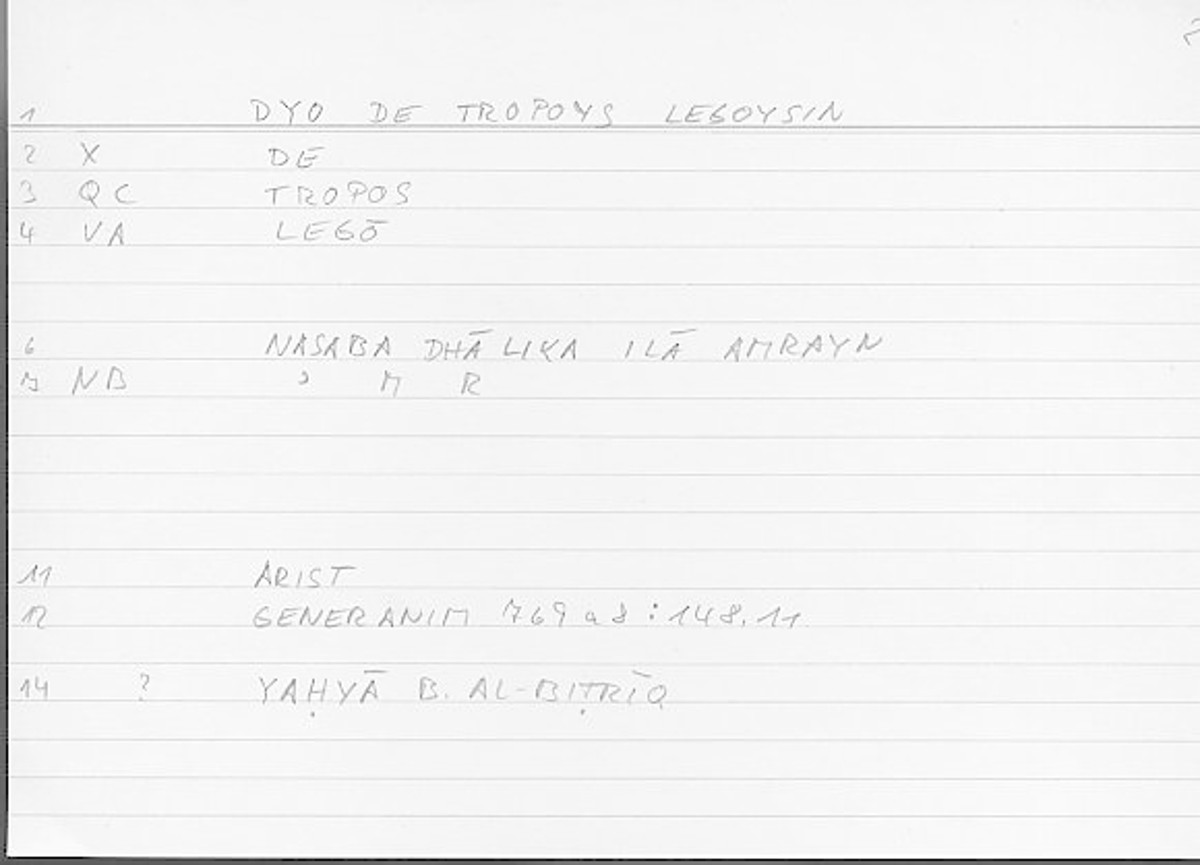 1 DYO DE TROPOYS LEGOYSIN
2 X DE
3 QC TROPOS
4 VA LEGŌ
6 NASABA DHĀLIKA ILĀ AMRAYN
7 NB ʾ M R
11 ARIST
12 GENERANIM 769 a 8 : 148.11
14 ? YAḤYĀ B. AL-BIṬRĪQ